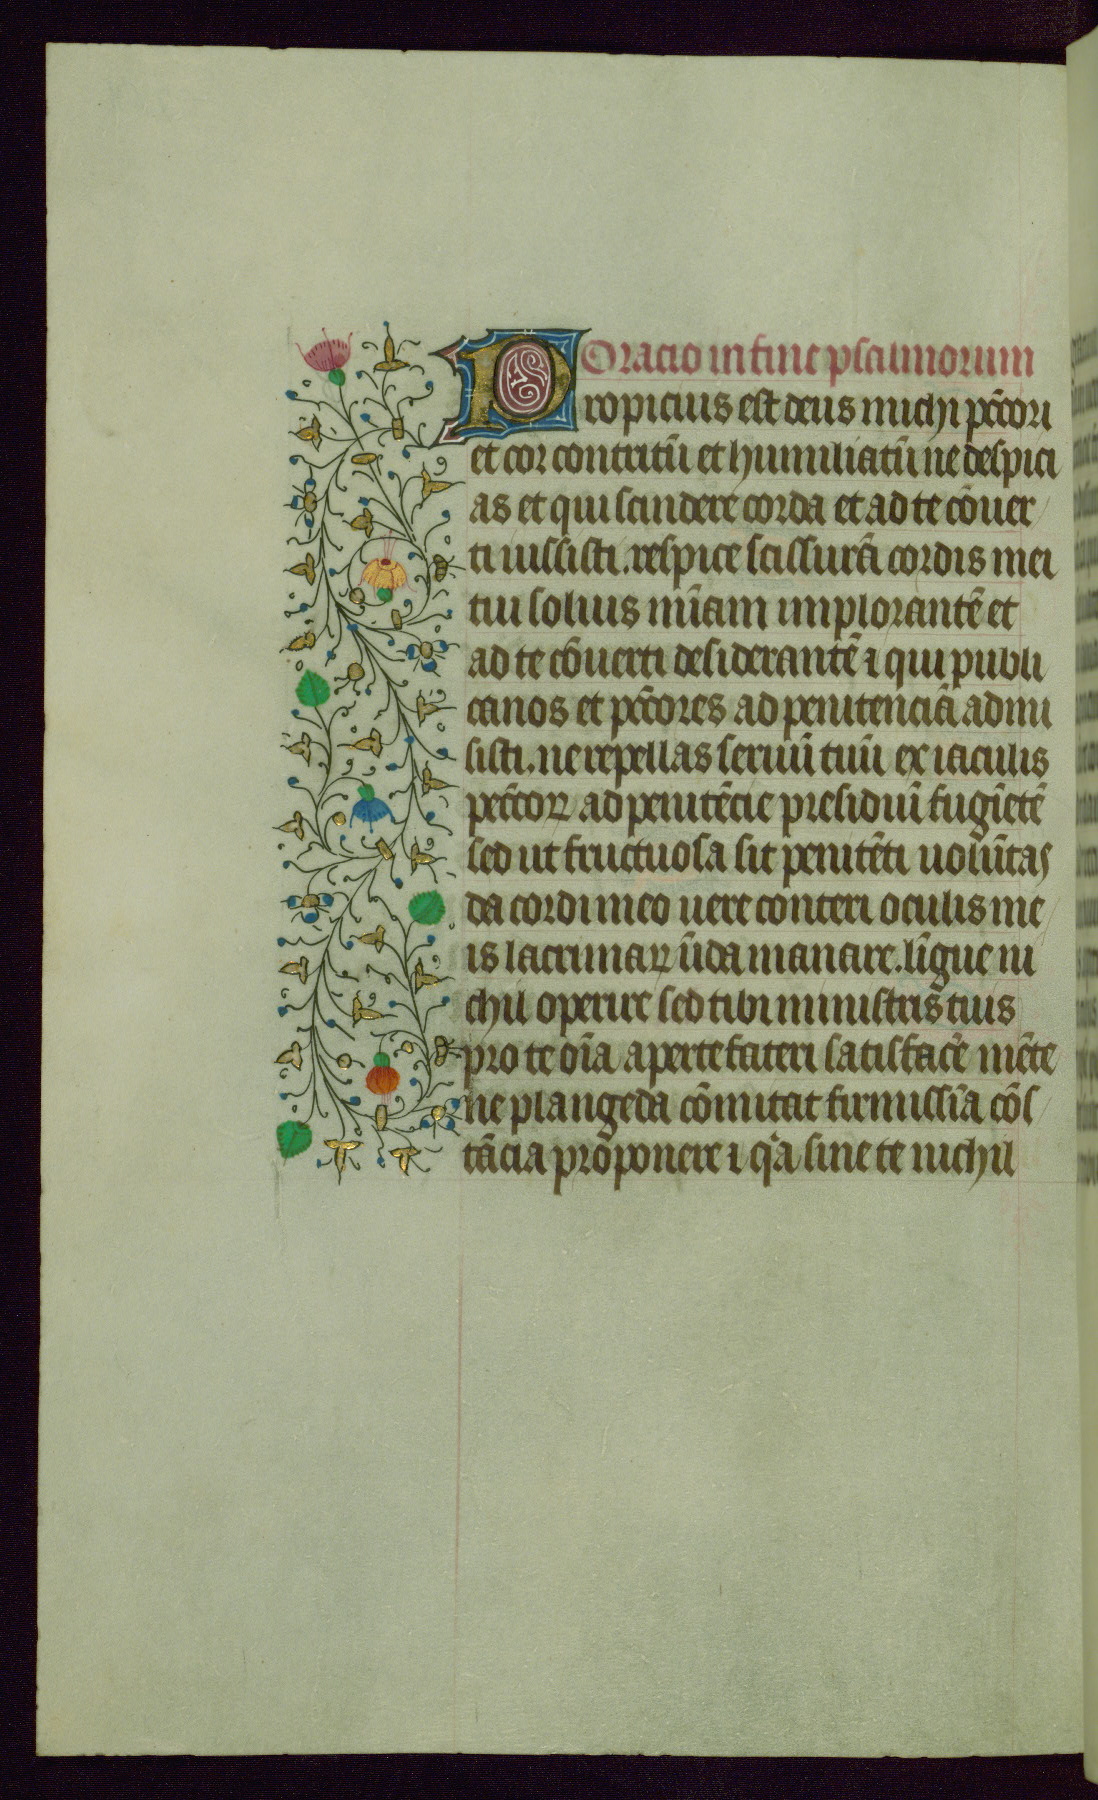 Oracio in fine psalmorum
Propicius est deus michi pc̄cori
et cor contritū et humiliatū ne despici
as et qui scindere corda et ad te cōuer
ti iussisti. respice scissurā cordis mei
tui solius mīam implorantē et
ad te cōuerti desiderantē ⁊ qui publi
canos et pc̄tores ad penitenciā admi
sisti. ne repellas seruū tuū ex iaculis
petc̄oꝝ ad penitēcie presidiuī fugiētē
sed ut fructuosa sit penitēti uolūtas
da cordi meo uere conteri oculis me
is lacrimaꝝ ūda manare. līgue ni
chil operire sed tibi ministris tuis
pro te oīa aperte fateri satisfac̄e mēte
ne plangēda cōmitat firmissīa cōs
tācia prōponere ⁊ qͣa sine te nichil